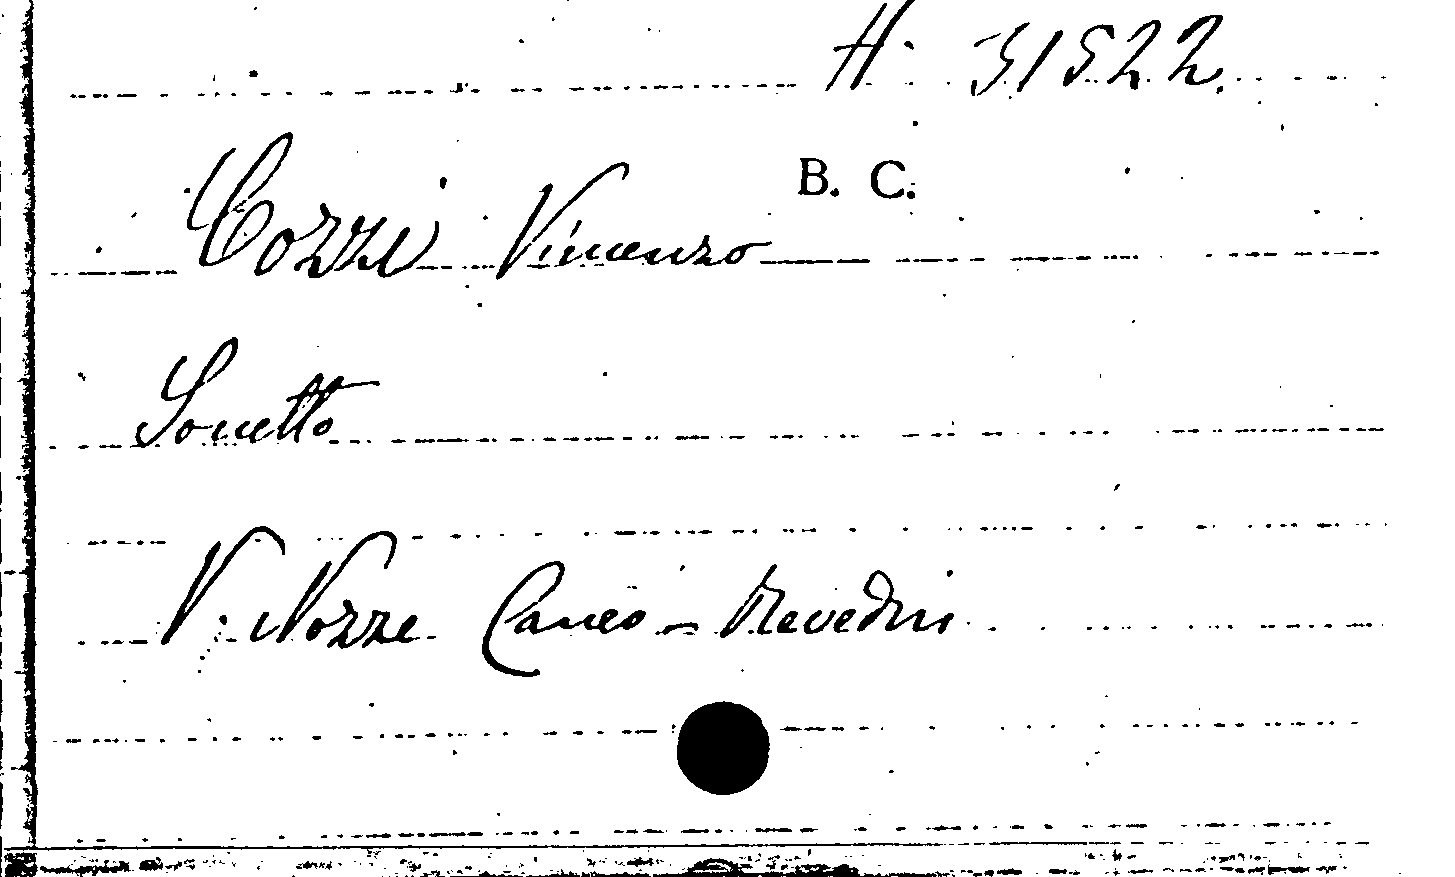 H. 31522.
B. C.
Cozzi Vincenzo
Sonetto
V. Nozze Caneo - Revedin